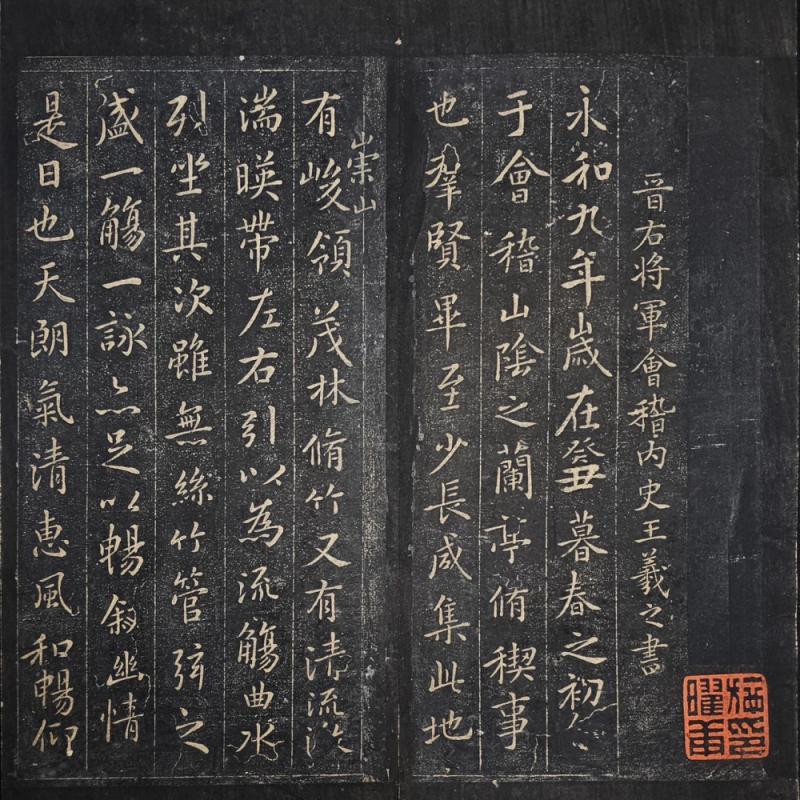 晋右将軍會稽内史王羲之書
永和九年歲在癸丑暮春之初
于會稽山陰之蘭亭脩稧事
也羣賢畢至少長咸集此地
崇山
有峻領茂林脩竹又有清流激
湍暎帶左右引以為流觴曲水
列坐其次雖無絲竹管弦之
盛一觴一詠亦足以暢叙幽情
是日也天朗氣清惠風和暢仰